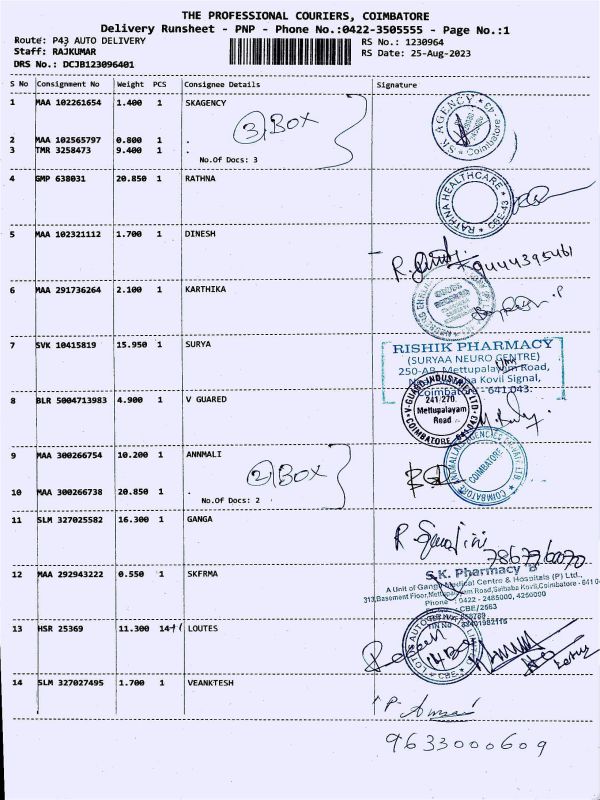 THE PROFESSIONAL COURIERS, COIMBATORE
Delivery Runsheet - PNP - Phone No.:0422-3505555 - Page No.:1
Route: P43 AUTO DELIVERY
Staff: RAJKUMAR
DRS No.: DCJB123096401
RS No.: 1230964
RS Date: 25-Aug-2023
S No Consignment No Weight PCS Consignee Details Signature
1 MAA 102261654 1.400 1 SKAGENCY
3 BOX
2 MAA 102565797 0.800 1 .
3 TMR 3258473 9.400 1 .
No.Of Docs: 3
SK AGENCY Coimbatore
4 GMP 638031 20.850 1 RATHNA
RATHNA HEALTHCARE CBE-43
5 MAA 102321112 1.700 1 DINESH
9444395461
6 MAA 291736264 2.100 1 KARTHIKA
7 SVK 10415819 15.950 1 SURYA
RISHIK PHARMACY
(SURYAA NEURO CENTRE)
250-AB, Mettupalayam Road,
Kovil Signal,
Coimbatore - 641 043.
8 BLR 5004713983 4.900 1 V GUARED
V-GUARD INDUSTRIES LTD
241/270,
Mettupalayam
Road
COIMBATORE - 641 043
9 MAA 300266754 10.200 1 ANNMALI
2 BOX
10 MAA 300266738 20.850 1 .
No.Of Docs: 2
COIMBATORE
11 SLM 327025582 16.300 1 GANGA
12 MAA 292943222 0.550 1 SKFRMA
S.K. Pharmacy 'B'
A Unit of Ganga Medical Centre & Hospitals (P) Ltd.,
313,Basement Floor,Mettupalayam Road,Saibaba Kovil,Coimbatore - 641 0
Phone : 0422 - 2485000, 4250000
13 HSR 25369 11.300 14+1 1 LOUTES
CBE
14 SLM 327027495 1.700 1 VEANKTESH
9633000609